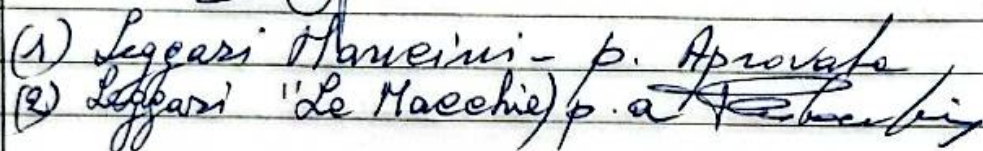 (1) Leggasi Mancini - p. Aprovata
(2) Leggasi "Le Macchie) p. a